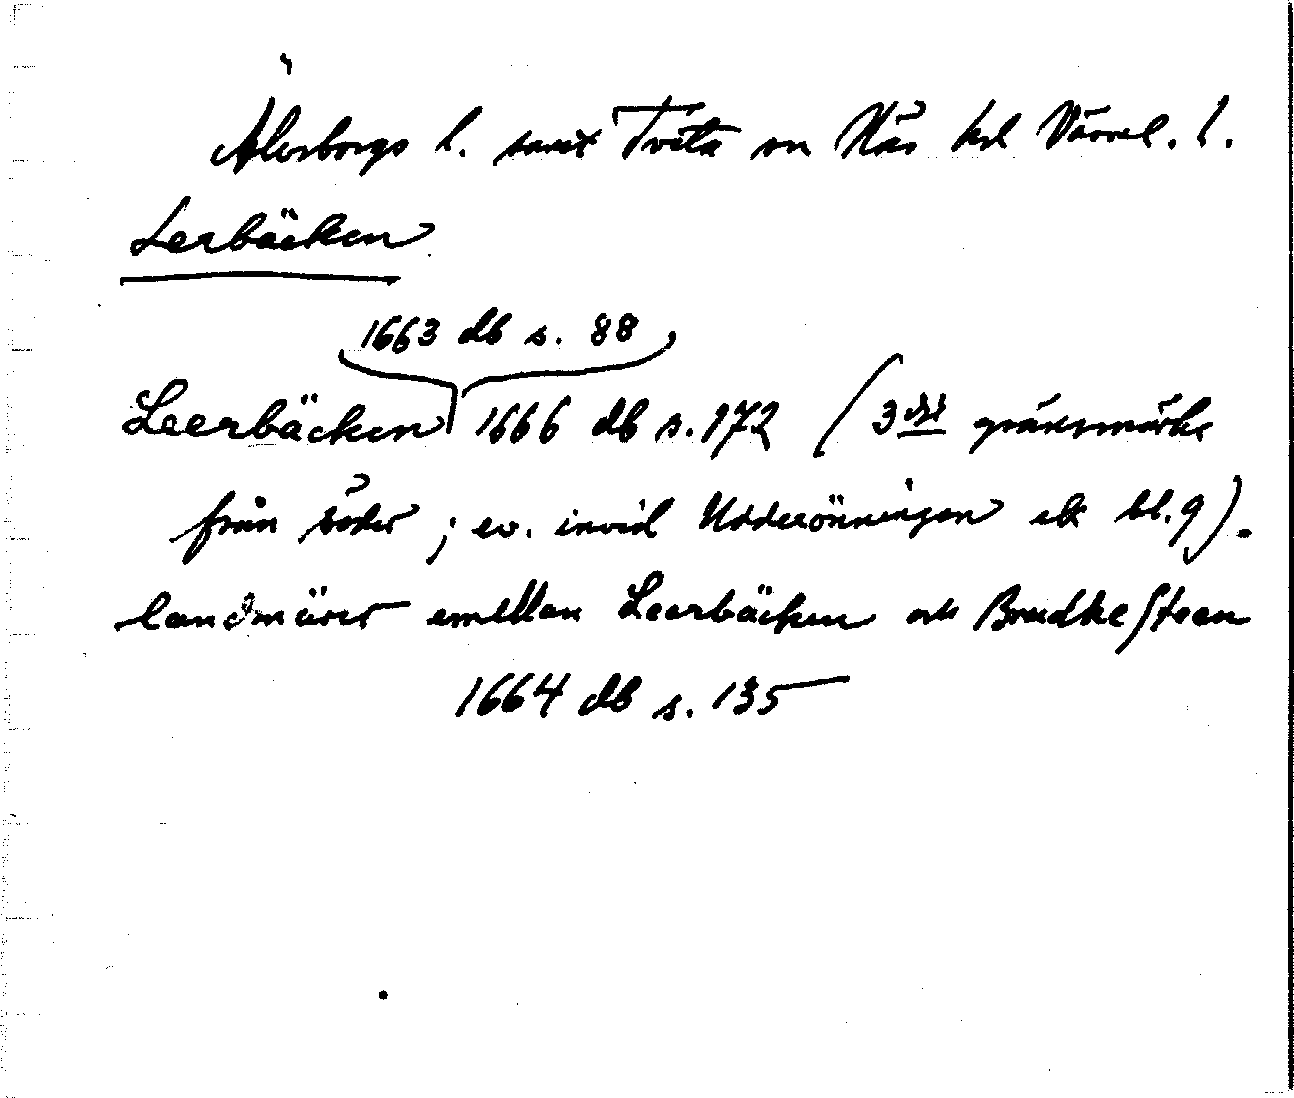 Älvsborgs l. samt Tveta sn Näs hd Värml. l.
Lerbäcken
1663 db s. 88
Leerbäcken 1666 db s. 172 (3die gränsmärke
från söder; ev. invid Udderönningen ek bl. 9).
landmärer emellan Leerbäcken och BredkeSteen
1664 db s. 135